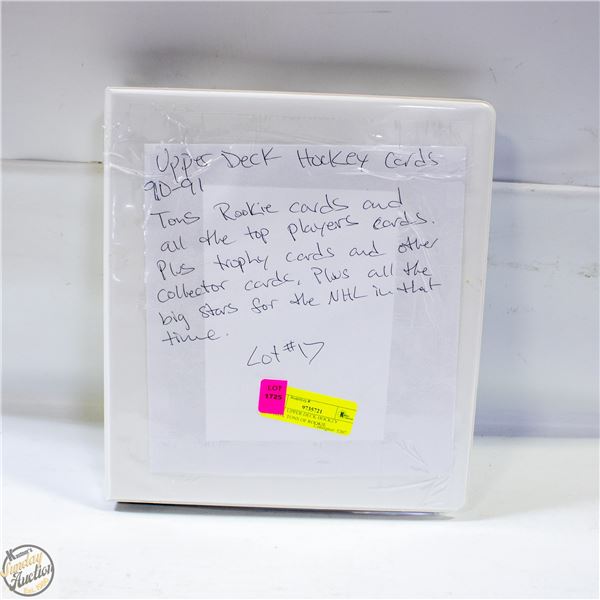 Upper Deck Hockey Cards
90-91
Tons Rookie cards and
all the top players cards.
Plus trophy cards and other
collector cards, Plus all the
big stars for the NHL in that
time.
Lot #17
LOT
1725
9716721
UPPER DECK HOCKEY
TONS OF ROOKIE
Sunday
Auction